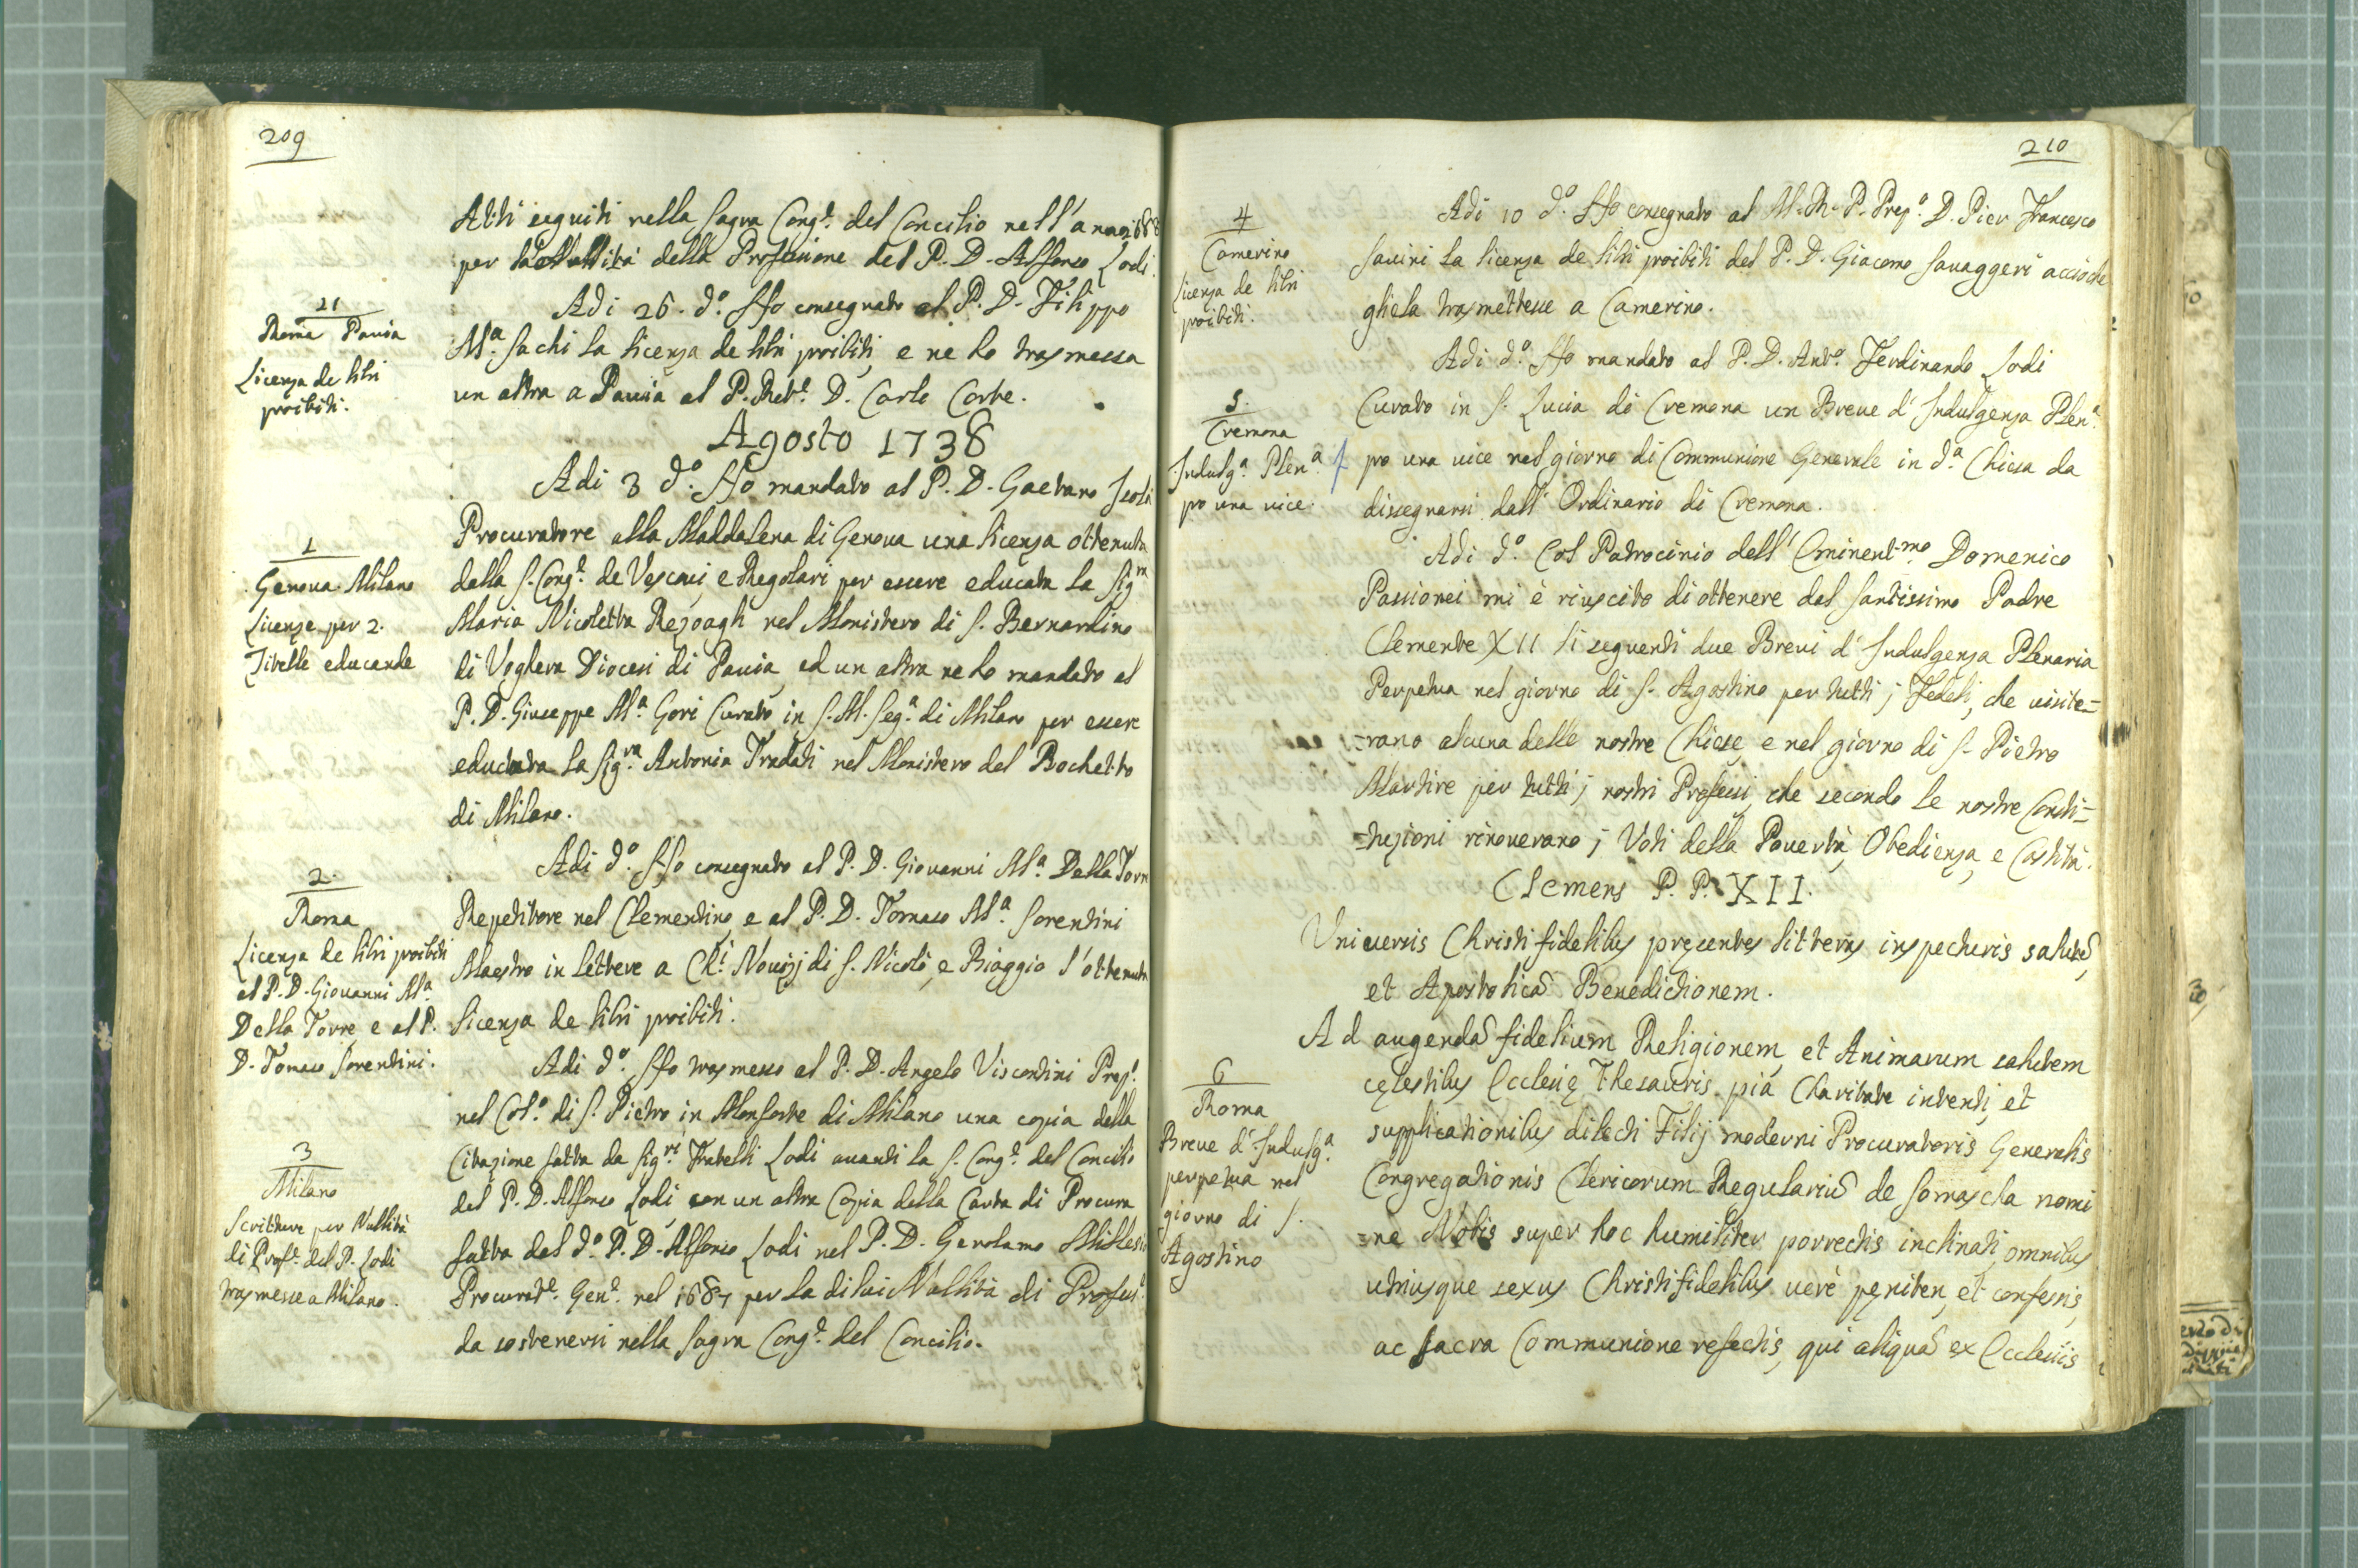 209
Atti seguiti nella Sagra Cong.e del Concilio nell'anno 1688
per la Nullità della Professione del P. D. Alfonso Lodi.
21
Roma Pavia
Licenza de libri
proibiti.
Adi 26. d.o Ho consegnato al P. D. Filippo
M.a Sachi la licenza de libri proibiti, e ne ho trasmessa
un altra a Pavia al P. Ret.e D. Carlo Corte.
Agosto 1738
1
Genova Milano
Licenze per 2.
Zitelle educande
Adi 3 d.o Ho mandato al P. D. Gaetano
Procuratore alla Maddalena di Genova una licenza ottenuta
dalla S. Cong.e de Vescovi, e Regolari per essere educata la Sig.ra
Maria Nicoletta Rezoagli nel Monistero di S. Bernardino
di Voghera Diocesi di Pavia, ed un altra ne ho mandato al
P. D. Giuseppe M.a Gori Curato in S. M. Seg.a di Milano per essere
educata la Sig.ra Antonia Tradati nel Monistero del Bochetto
di Milano.
2.
Roma
Licenza de libri proibiti
al P. D. Giovanni M.a
Della Torre e al P.
D. Tomaso Sorentini.
Adi d.o Ho consegnato al P. D. Giovanni M.a Della Torre
Repetitore nel Clementino, e al P. D. Tomaso M.a Sorentini
Maestro in lettere a Ch.i Novizj di S. Nicolò, e Biaggio l'ottenuta
licenza de libri proibiti.
3
Milano
Scritture per Nullità
di Prof.e del P. Lodi
trasmesse a Milano.
Adi d.o Ho trasmesso al P. D. Angelo Viscontini Prep.o
nel Col.o di S. Pietro in Monforte di Milano una copia della
Citazione fatta da Sig.ri Fratelli Lodi avanti la S. Cong.e del Concilio
del P. D. Alfonso Lodi, con un altra Copia della Carta di Procura
fatta dal d.o P. D. Alfonso Lodi nel P. D. Gerolamo
Procurat.e Gen.e nel 1687 per la di lui Nullità di Profess.e
da sostenersi nella Sagra Cong.e del Concilio.
210
4
Camerino
Licenza de libri
proibiti.
Adi 10 d.o Ho consegnato al M. R. P. Prep.o D. Pier Francesco
Savini la licenza de libri proibiti del P. D. Giacomo Savaggeri acciòche
gliela trasmettesse a Camerino.
5.
Cremona
Indulg.a Plen.a
pro una vice.
Adi d.o Ho mandato al P. D. Ant.o Ferdinando Lodi
Curato in S. Lucia di Cremona un Breve d'Indulgenza Plen.a
pro una vice nel giorno di Communione Generale in d.a Chiesa da
dissegnarsi dall'Ordinario di Cremona.
Adi d.o Col Patrocinio dell'Eminent.mo Domenico
Passionei mi è riuscito di ottenere dal Santissimo Padre
Clemente XII li seguenti due Brevi d'Indulgenza Plenaria
Perpetua nel giorno di S. Agostino per tutti j Fedeli, che visite=
=rano alcuna delle nostre Chiese, e nel giorno di S. Pietro
Martire per tutti j nostri Professi, che secondo le nostre Consti=
=tuzioni rinoverano j Voti della Povertà, Obedienza, e Castità.
Clemens P. P. XII.
Universis Christifidelibus presentes litteras inspecturis salutẽ,
et Apostolicã Benedictionem.
6
Roma
Breve d'Indulg.a
perpetua nel
giorno di S.
Agostino
Ad augendã fidelium Religionem, et Animarum salutem
cęlestibus Ecclesię Thesauris pia Charitate intenti, et
supplicationibus dilecti Filij moderni Procuratoris Generalis
Congregationis Clericorum Regulariũ de Somascha nomi
=ne Nobis super hoc humiliter porrectis inclinati, omnibus
utriusque sexus Christifidelibus verè pęniten, et confessis,
ac Sacra Communione refectis, qui aliquã ex Ecclesiis